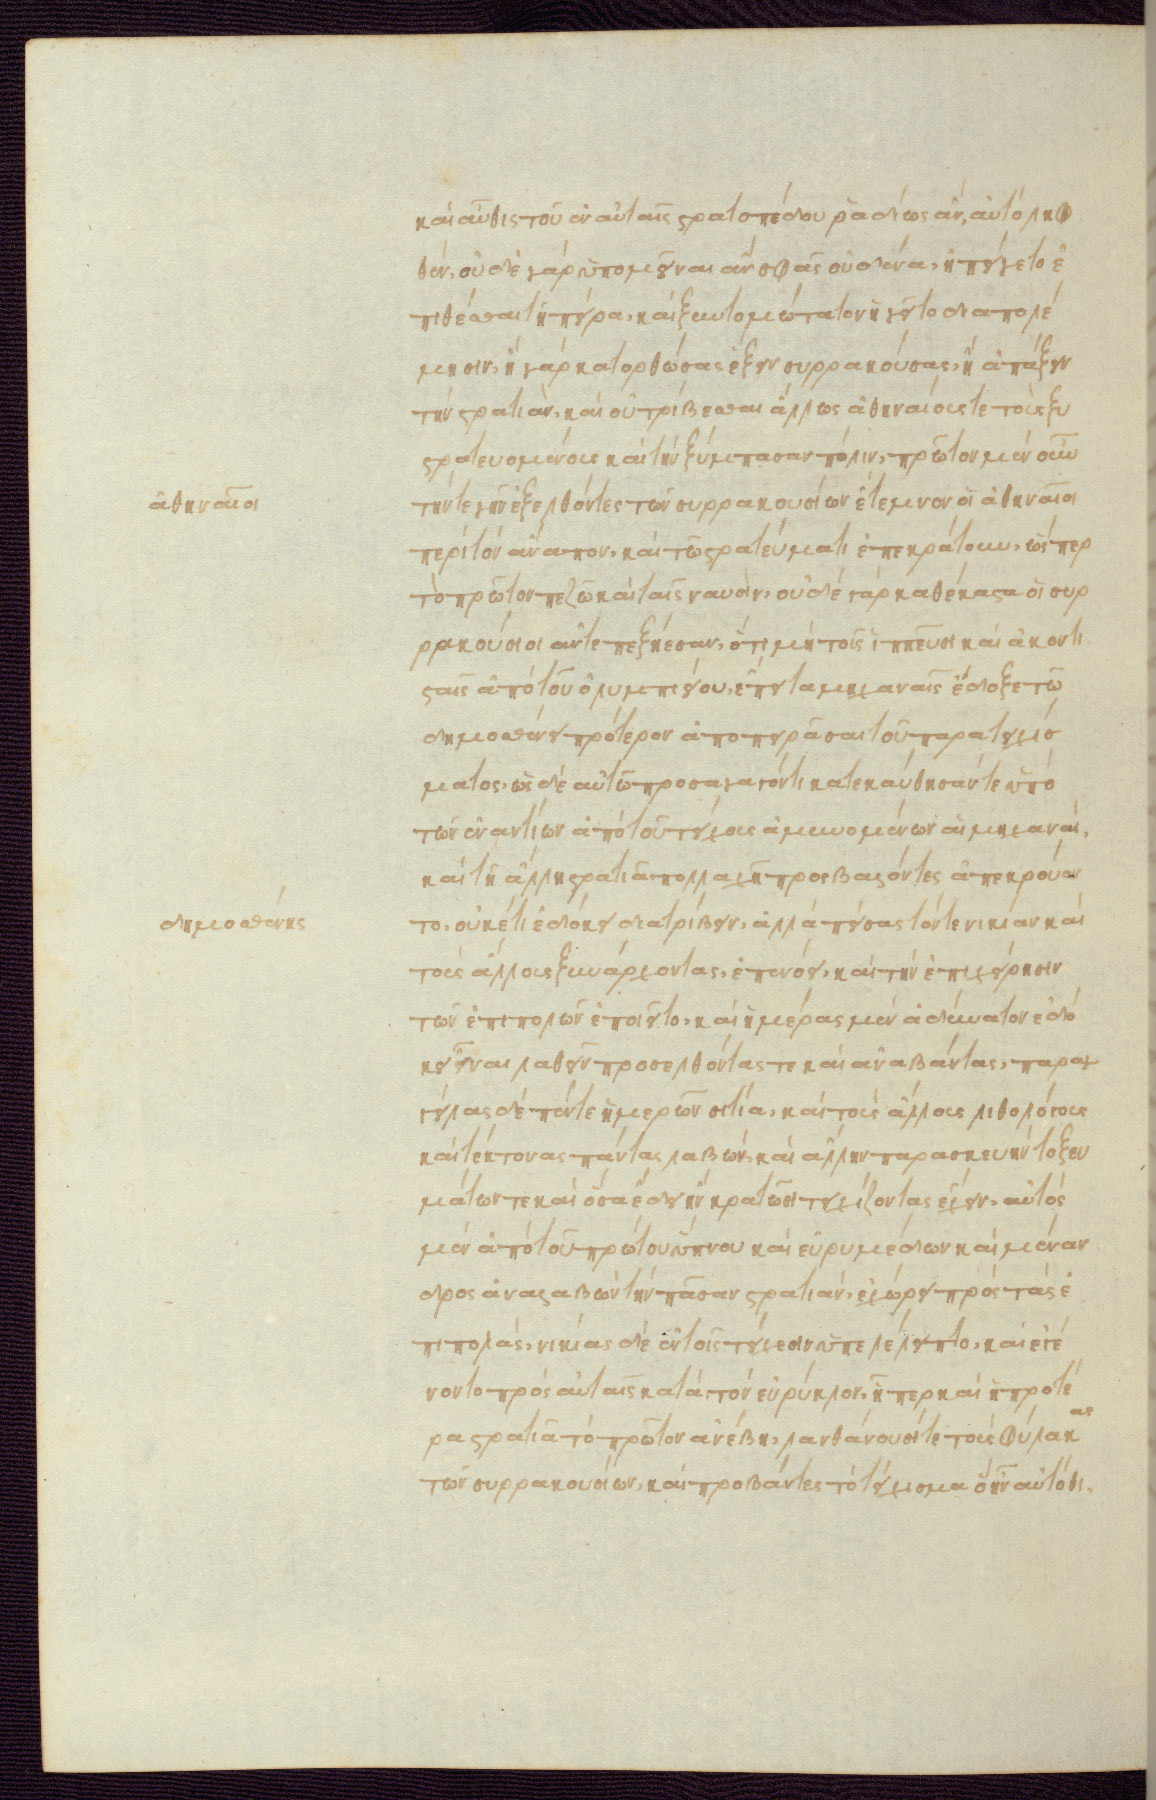 καὶ αὖθις τοῦ ἐν αὐταῖς στρατοπέδου ῥαδίως ἂν, αὐτὸ ληφ
θέν, οὐδὲ γὰρ ὑπομεῖναι ἂν σφᾶς οὐδένα, ἠπείγετο ἐ
πιθέσθαι τῇ πείρα, καὶ ξυντομώτατον ἡγεῖτο διαπολέ
μησιν, ἢ γὰρ κατορθώσας ἕξειν συρρακούσας, ἢ ἀπάξειν
τὴν στρατιὰν, καὶ οὐ τρίβεσθαι ἄλλως ἀθηναίους τε τοὺς ξυ
στρατευομένους καὶ τὴν ξύμπασαν πόλιν, πρῶτον μὲν οὖν
ἀθηναῖοι
τήν τε γῆν ἐξελθόντες τῶν συρρακουσίων ἔτεμνον οἱ ἀθηναῖοι
περὶ τὸν ἄναπον, καὶ τῶ στρατεύματι ἐπεκράτουν, ὥσπερ
τὸ πρῶτον πεζῶ καὶ ταῖς ναυσὶν, οὐδὲ γὰρ καθ' ἕκαστα οἱ συρ
ρακούσιοι ἀντεπεξῄεσαν, ὅτι μὴ τοῖς ἱππεῦσι καὶ ἀκοντι
σταῖς ἀπὸ τοῦ ὀλυμπιείου, ἔπειτα μηχαναῖς ἔδοξε τῶ
δημοσθένει πρότερον ἀποπειρᾶσαι τοῦ παρατειχίσ
ματος, ὡς δὲ αὐτῶ προσαγαγόντι κατεκαύθησάν τε ὑπὸ
τῶν ἐναντίων ἀπὸ τοῦ τείχους ἀμυνομένων αἱ μηχαναὶ,
καὶ τῇ ἄλλη στρατιᾶ πολλαχῆ προσβάλλοντες ἀπεκρούον
δημοσθένης
το, οὐκέτι ἐδόκει διατρίβειν, ἀλλὰ πείσας τόν τε νικίαν καὶ
τοὺς ἄλλους ξυνάρχοντας, ἐπενόει, καὶ τὴν ἐπιχείρησιν
τῶν ἐπιπολῶν ἐποιεῖτο, καὶ ἡμέρας μὲν ἀδύνατον ἐδό
κει εἶναι λαθεῖν προσελθόντας τε καὶ ἀναβάντας, παραγ
γείλας δὲ πέντε ἡμερῶν σιτία, καὶ τοὺς ἄλλους λιθολόγους
καὶ τέκτονας πάντας λαβὼν, καὶ ἄλλην παρασκευὴν τοξευ
μάτων τε καὶ ὅσα ἔδει ἢν κρατῶσι τειχίζοντας ἔχειν, αὐτὸς
μὲν ἀπὸ τοῦ πρώτου ὕπνου καὶ εὐρυμέδων καὶ μέναν
δρος ἀναλαβὼν τὴν πᾶσαν στρατιὰν, ἐχώρει πρὸς τὰς ἐ
πιπολὰς, νικίας δὲ ἐν τοῖς τείχεσιν ὑπελέλειπτο, καὶ ἐγέ
νοντο πρὸς αὐταῖς κατὰ τὸν εὐρύηλον, ᾗπερ καὶ ἡ προτέ
ρα στρατιὰ τὸ πρῶτον ἀνέβη, λανθάνουσί τε τοὺς φύλακας
τῶν συρρακουσίων, καὶ προβάντες τὸ τείχισμα ὃ ἦν αὐτόθι,